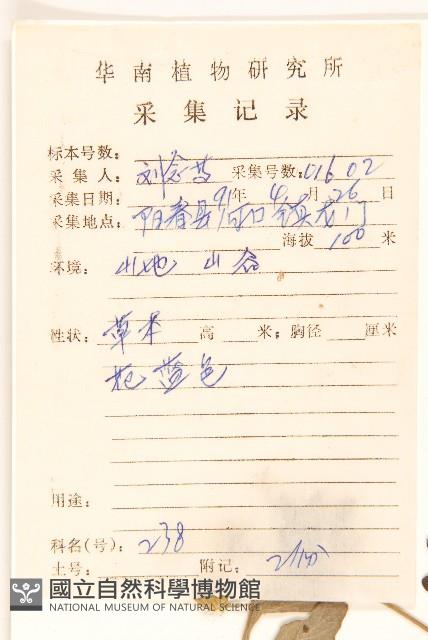 华南植物研究所
采集记录
标本号数:
采集人: 刘念 采集号数: 01602
采集日期: 91年4月26日
采集地点: 阳春县河口镇龙门
海拔 100 米
环境: 山地 山谷
性状: 草本 高 米; 胸径 厘米
花蓝色
用途:
科名(号): 238
土号: 附记: 2份
國立自然科學博物館
NATIONAL MUSEUM OF NATURAL SCIENCE